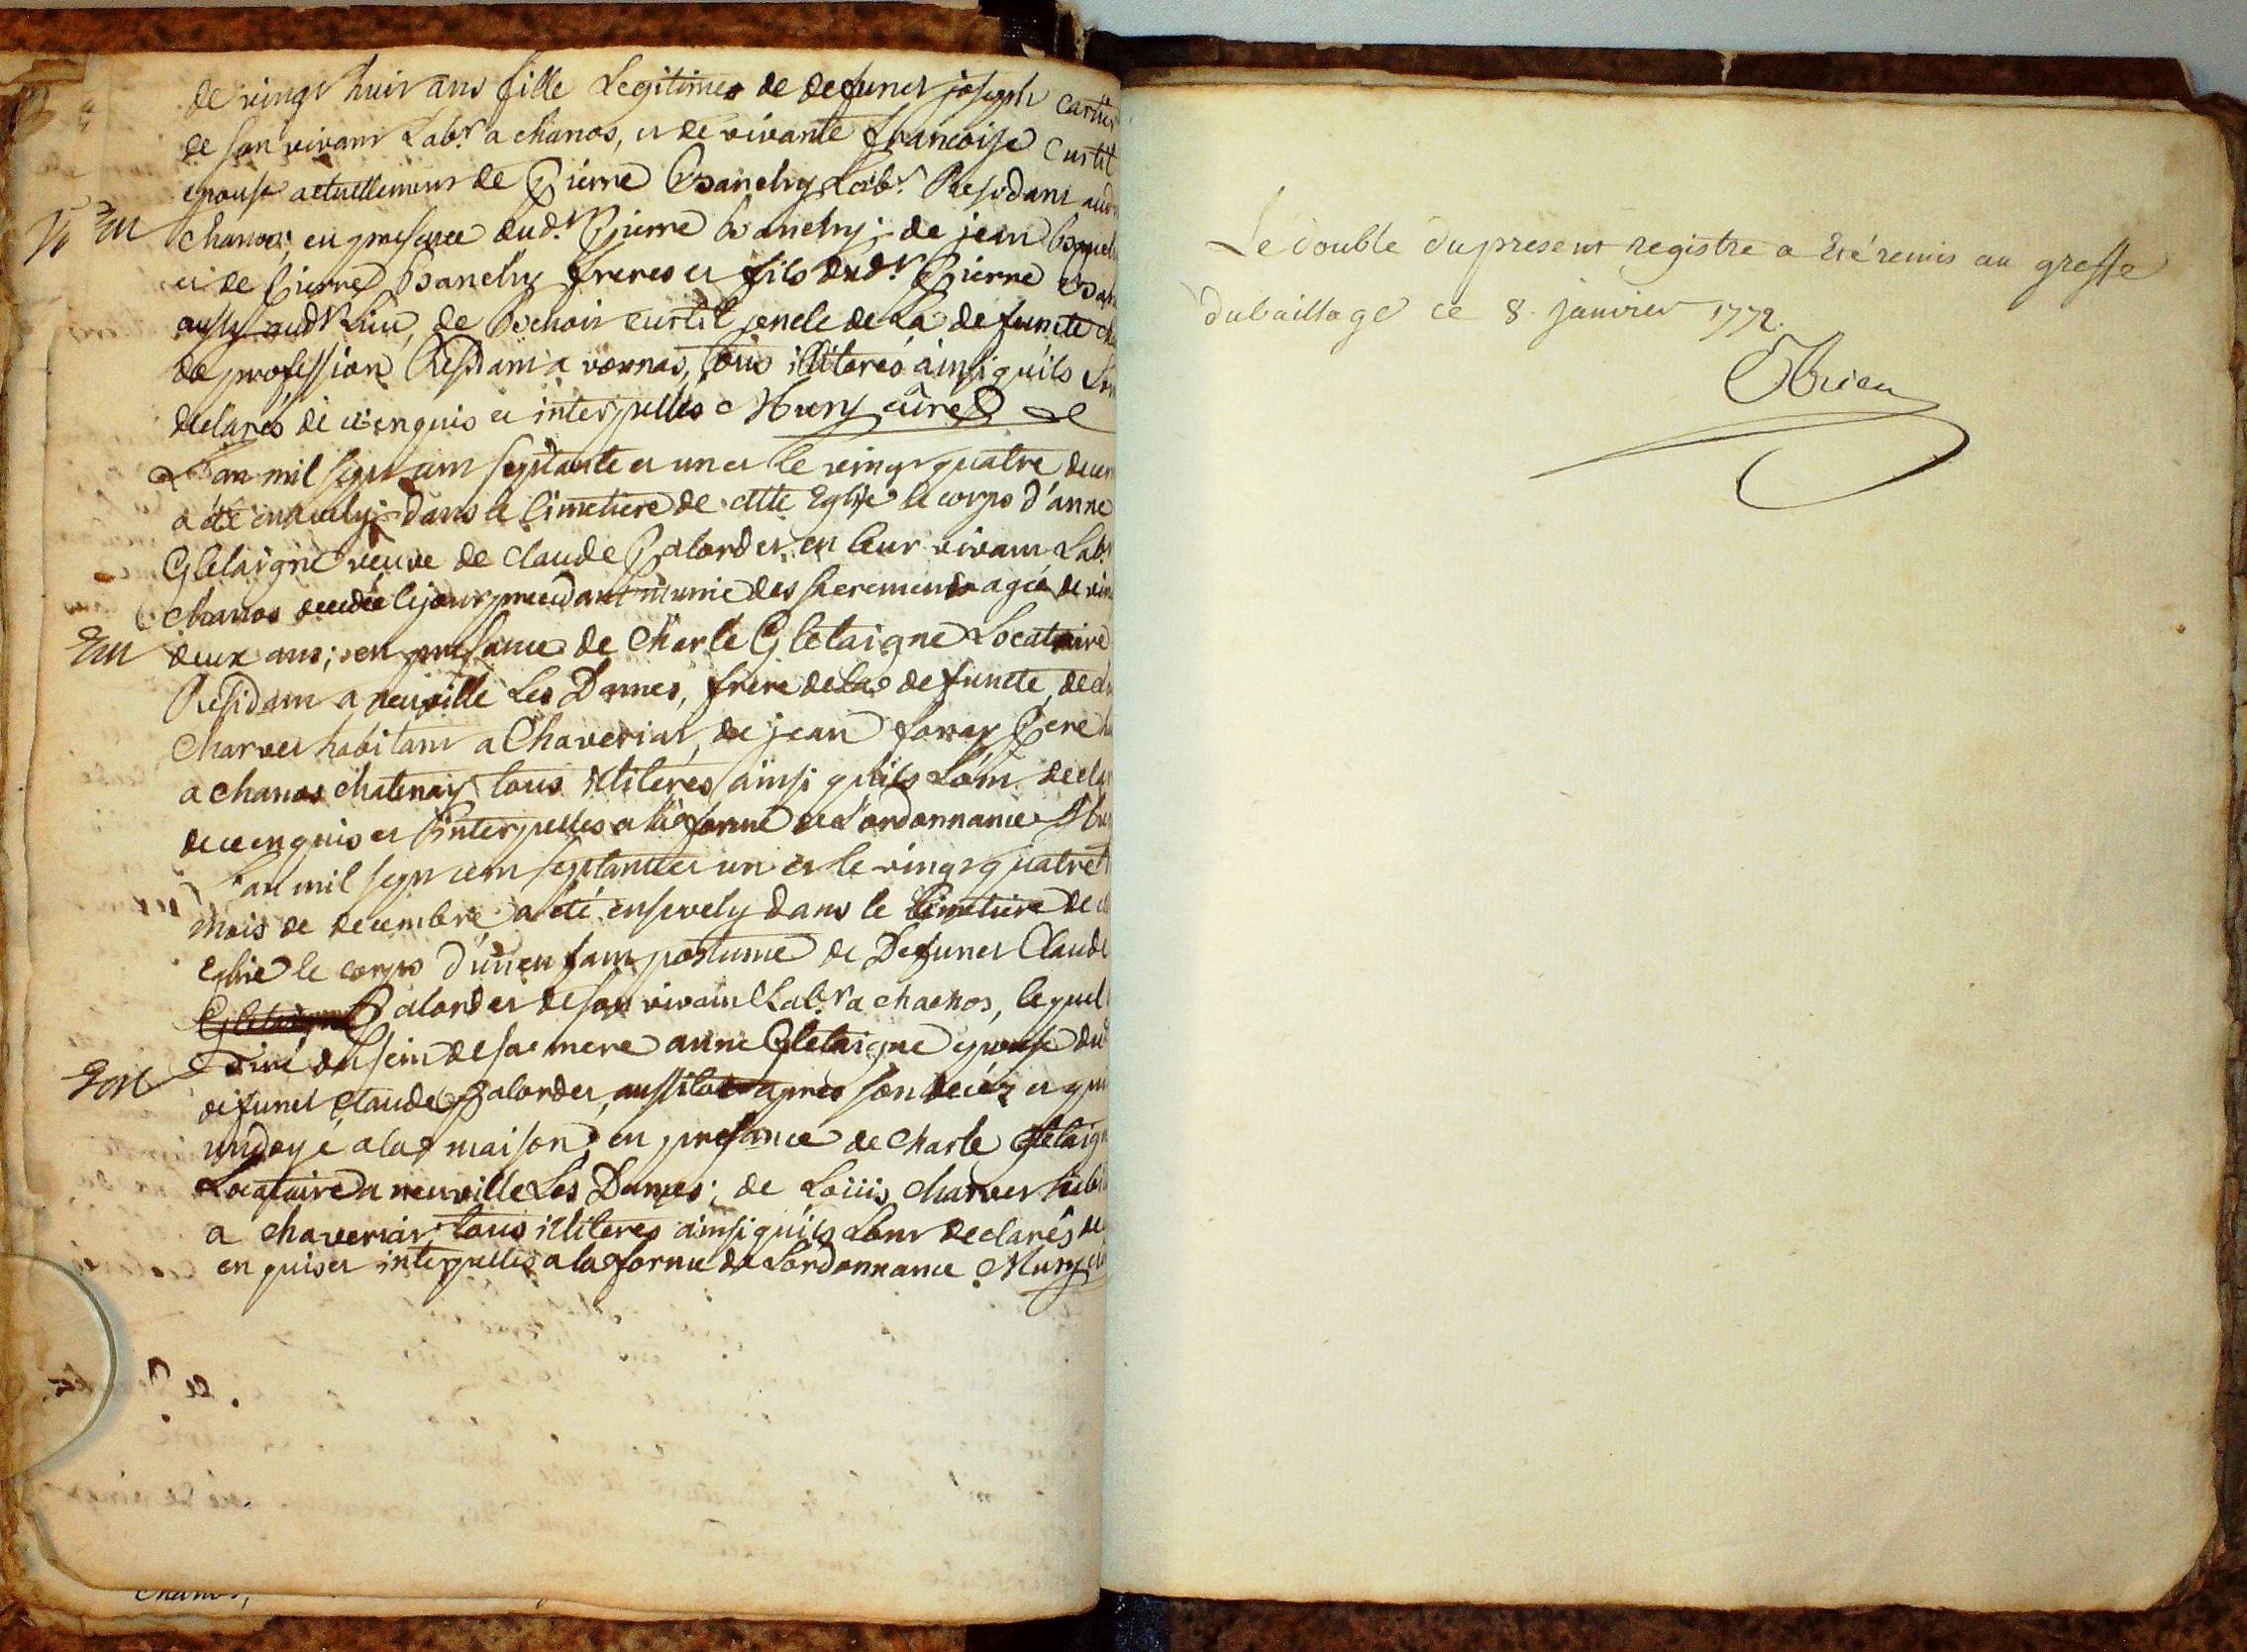 de vingt huit ans fille Legitime de defunct joseph Cartier
de son vivant Labr. a chanos, et de vivante francoise Curtil
epouse actuellement de Pierre Banchy Labr. Residant aud
chanos; en presence dud.t Pierre Banchy; de jean
et de Pierre Banchy freres et fils dud.t Pierre
aussy audt Lieu, de curtil oncle de La defuncte
de profession Residant a vonnas, tous illiterés ainsi quils
declarés de ce enquis et interpellés Mury curé
L'an mil sept cent septante et un et le vingt quatre
a été ensevely dans le Cimetiere de cette Eglise le corps d'anne
Gletaigne veuve de claude Palordet en leur vivant Labr.
chanos decedée le jour precedant munie des sacrements agée de
deux ans; en presance de Charle Gletaigne Locataire
Residant a neuville Les Dames, frere de la defuncte,
charvet habitant a Chaveriat, de jean Pere
a chanos chatenay tous illiteres ainsi quils L'ont
de ce enquis et interpelles a la forme de L'ordonnance
L'an mil sept cent septante et un et le vingt quatre
mois de decembre a été ensevely dans le Cimetiere de
eglise le corps d'un enfant postume de Defunct Claude
Gletaigne Palordet de son vivant Labr. a chanos, lequel
tiré du sein de sa mere anne Gletaigne epouse du
defunct claude Palordet, aussitot apres son decéz et
undoyé a la maison; en presance de charle
Locataire a neuville Les Dames; de Loüis charvet
a chaveriat, tous illiteres ainsi quils L'ont declarés de
enquis et interpellés a la forme de L'ordonnance Mury
Le double du present registre a été remis au greffe
du baillage ce 8. janvier 1772.